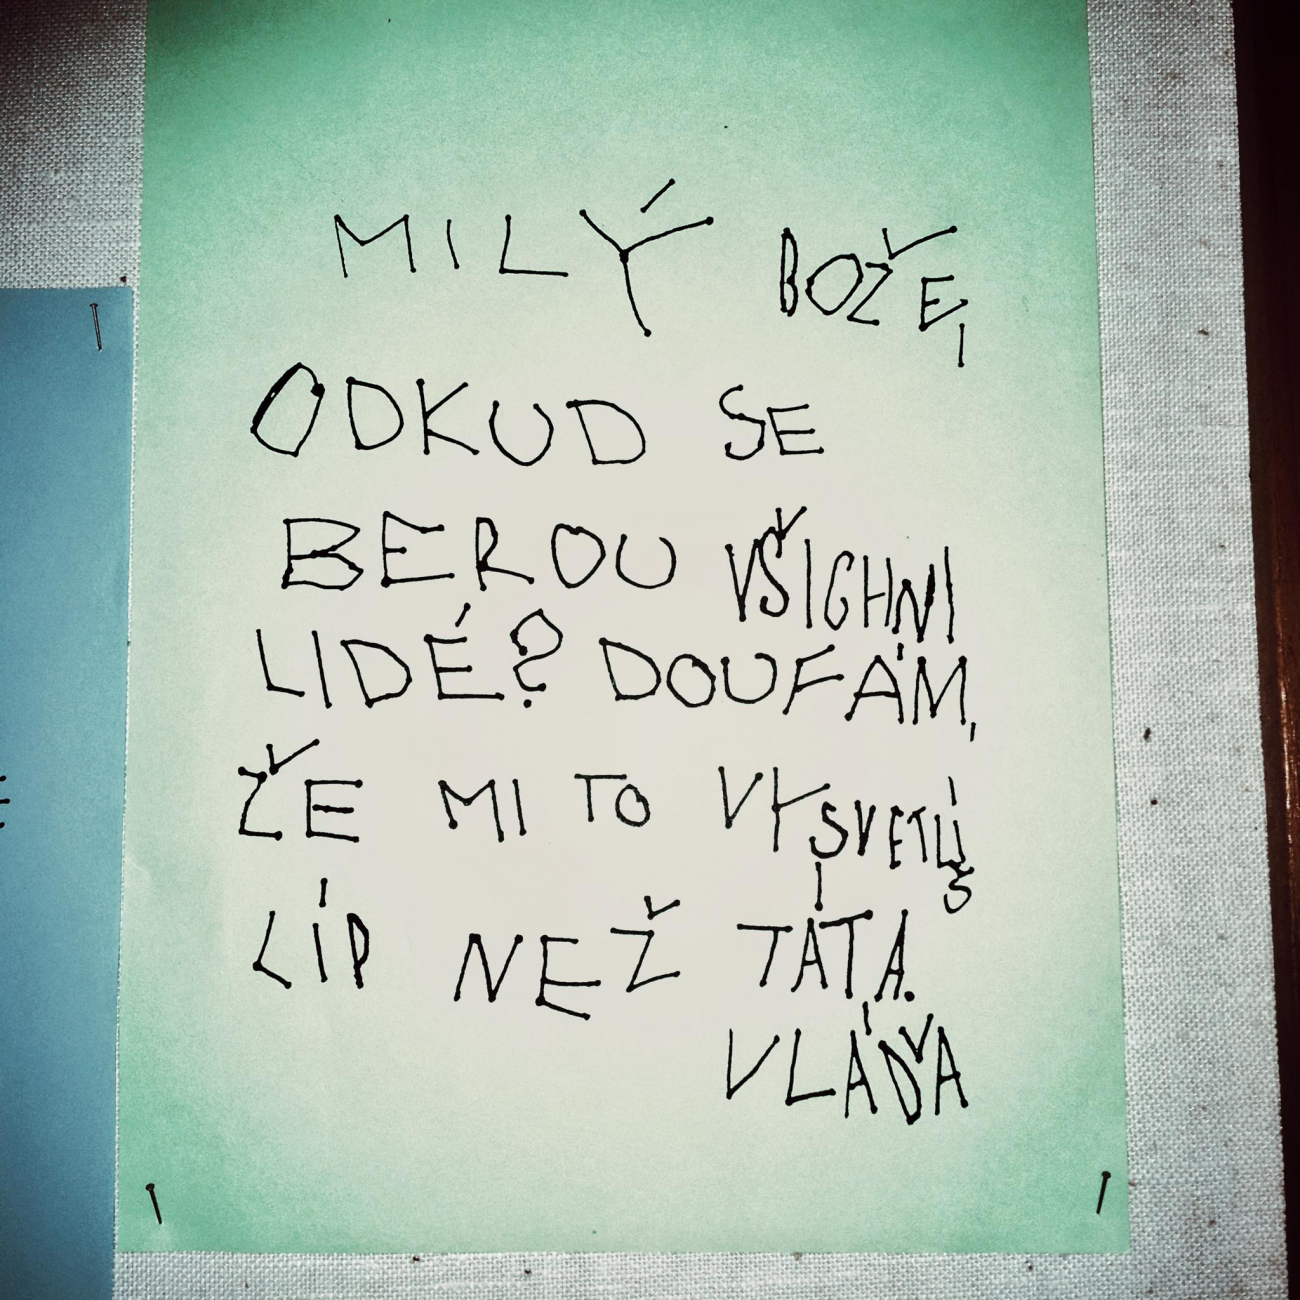 MILÝ BOŽE,
ODKUD SE
BEROU VŠICHNI
LIDÉ? DOUFÁM,
ŽE MI TO VYSVETLÍŠ
LÍP NEŽ TÁTA.
VLÁĎA